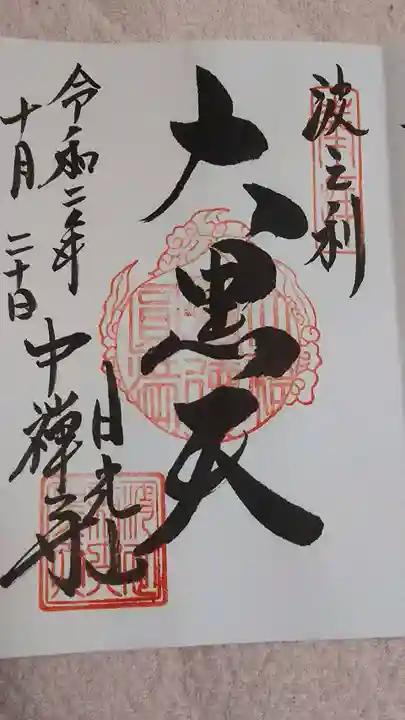 波之利
大黒天
日光山
中禪寺
令和二年
十月二十日